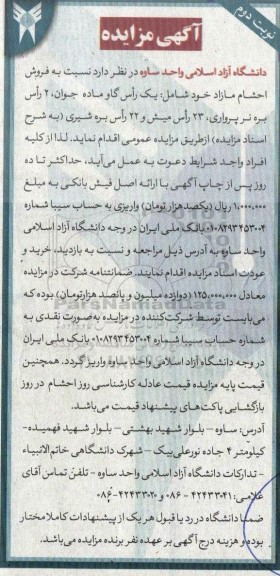 نوبت دوم
آگهی مزایده
دانشگاه آزاد اسلامی واحد ساوه در نظر دارد نسبت به فروش
احشام مازاد خود شامل: یک رأس گاو ماده جوان، ۲ رأس
بره نر پرواری، ۲۳ رأس میش و ۲۲ رأس بره شیری (به شرح
اسناد مزایده) از طریق مزایده عمومی اقدام نماید. لذا از کلیه
افراد واجد شرایط دعوت به عمل می‌آید، حداکثر تا ده
روز پس از چاپ آگهی با ارائه اصل فیش بانکی به مبلغ
۱,۰۰۰,۰۰۰ ریال (یکصد هزار تومان) واریزی به حساب سیبا شماره
۰۱۰۸۲۹۳۴۵۳۰۰۴ بانک ملی ایران در وجه دانشگاه آزاد اسلامی
واحد ساوه به آدرس ذیل مراجعه و نسبت به بازدید، خرید و
عودت اسناد مزایده اقدام نمایند. ضمانتنامه شرکت در مزایده
معادل ۱۲۵,۰۰۰,۰۰۰ (دوازده میلیون و پانصد هزار تومان) بوده که
می‌بایست توسط شرکت‌کننده در مزایده به‌صورت نقدی به
شماره حساب سیبا شماره ۰۱۰۸۲۹۳۴۵۳۰۰۴ بانک ملی ایران
در وجه دانشگاه آزاد اسلامی واحد ساوه واریز گردد. همچنین
قیمت پایه مزایده قیمت عادله کارشناسی روز احشام در روز
بازگشایی پاکت‌های پیشنهاد قیمت می‌باشد.
آدرس: ساوه - بلوار شهید بهشتی - بلوار شهید فهمیده-
کیلومتر ۴ جاده نورعلی‌بیک - شهرک دانشگاهی خاتم‌الانبیاء
- تدارکات دانشگاه آزاد اسلامی واحد ساوه - تلفن تماس آقای
غلامی: ۴۲۴۳۳۰۴۱ - ۰۸۶ و ۴۲۴۳۳۰۲۰-۰۸۶
ضمناً دانشگاه در رد یا قبول هر یک از پیشنهادات کاملاً مختار
بوده و هزینه درج آگهی بر عهده نفر برنده مزایده می‌باشد.